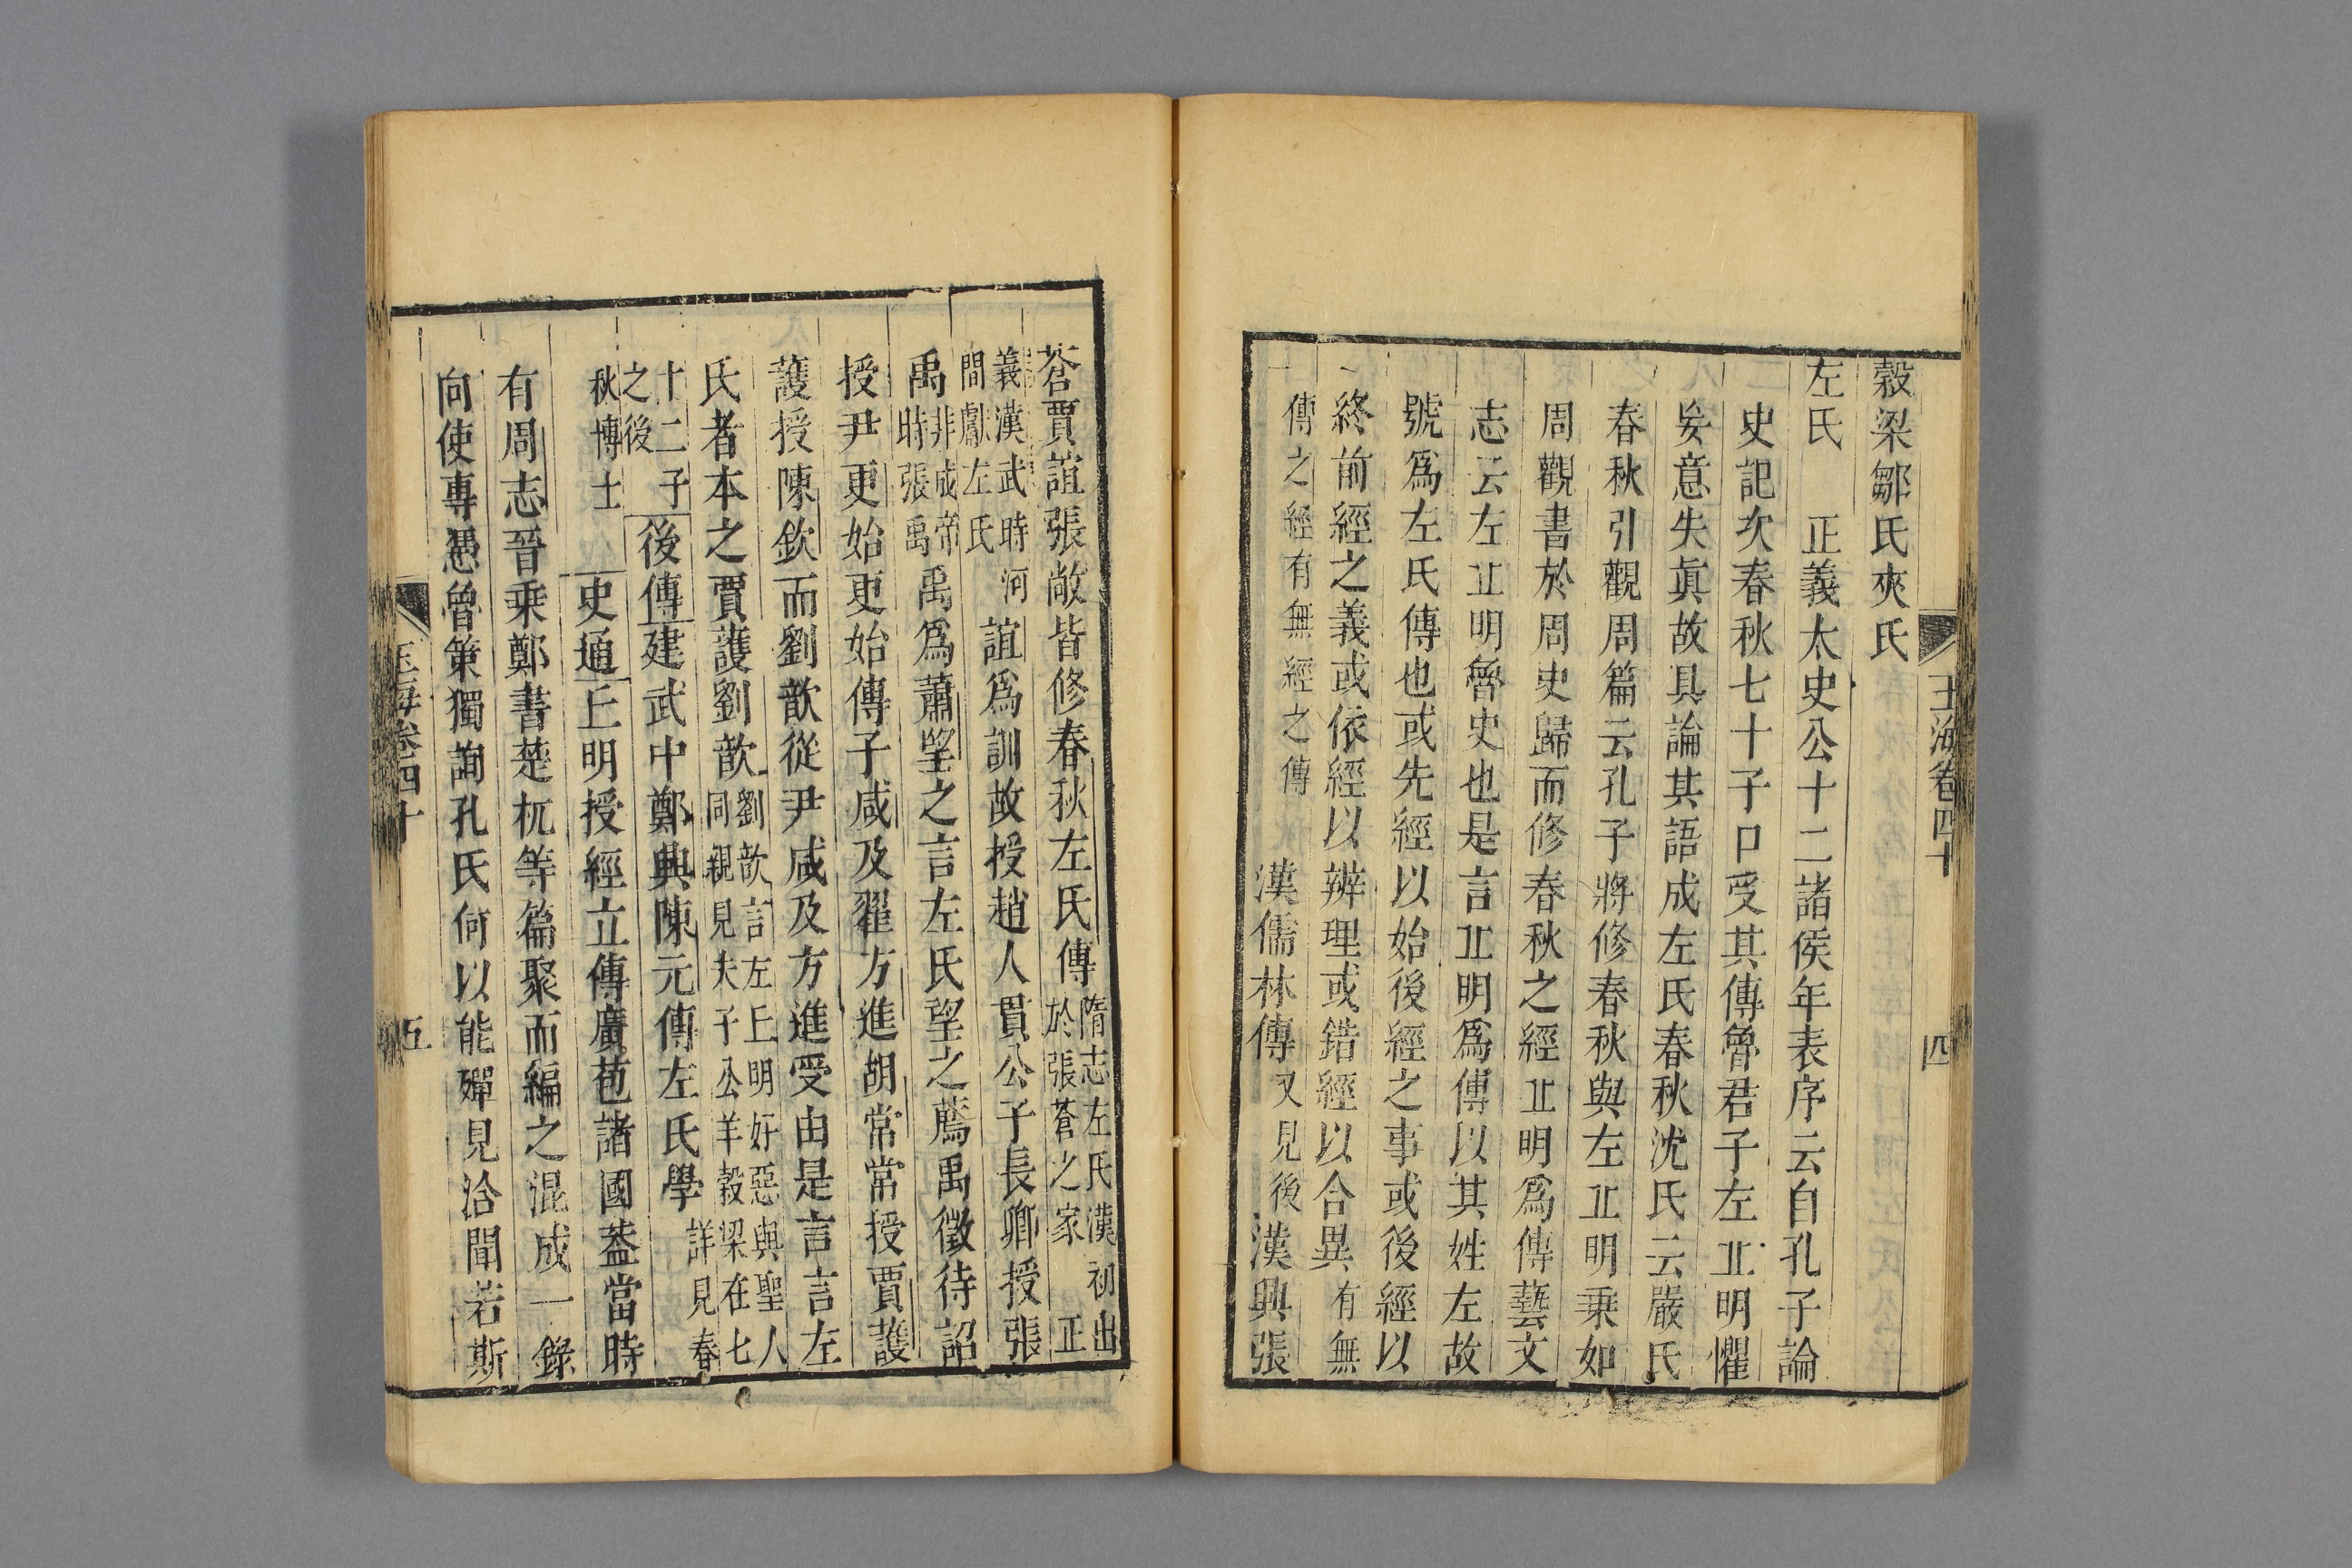 玉海卷四十
四
穀梁鄒氏夾氏
左氏　正義太史公十二諸侯年表序云自孔子論
史記次春秋七十子口受其傳魯君子左丠明懼
妄意失眞故具論其語成左氏春秋沈氏云嚴氏
春秋引觀周篇云孔子將修春秋與左丠明乗如
周觀書於周史歸而修春秋之經丠明爲傳藝文
志云左丠明魯史也是言丠明爲傳以其姓左故
號爲左氏傳也或先經以始後經之事或後經以
終前經之義或依經以辨理或錯經以合異有無
傳之經有無經之傳
漢儒林傳又見後漢興張
蒼賈誼張敞皆修春秋左氏傳隋志左氏漢初出
於張蒼之家　正
義漢武時河
間獻左氏
誼爲訓故授趙人貫公子長卿授張
禹非成帝
時張禹
禹爲蕭望之言左氏望之薦禹徵待詔
授尹更始更始傳子咸及翟方進胡常常授賈護
護授陳欽而劉歆從尹咸及方進受由是言言左
氏者本之賈護劉歆劉歆言左丘明好惡與聖人
同親見夫子公羊穀梁在七
十二子
之後
後傳建武中鄭興陳元傳左氏學詳見春
秋博士
史通丘明授經立傳廣苞諸國葢當時
有周志晉乗鄭書楚杌等篇聚而編之混成一錄
向使專憑魯策獨詢孔氏何以能殫見洽聞若斯
玉海卷四十
五